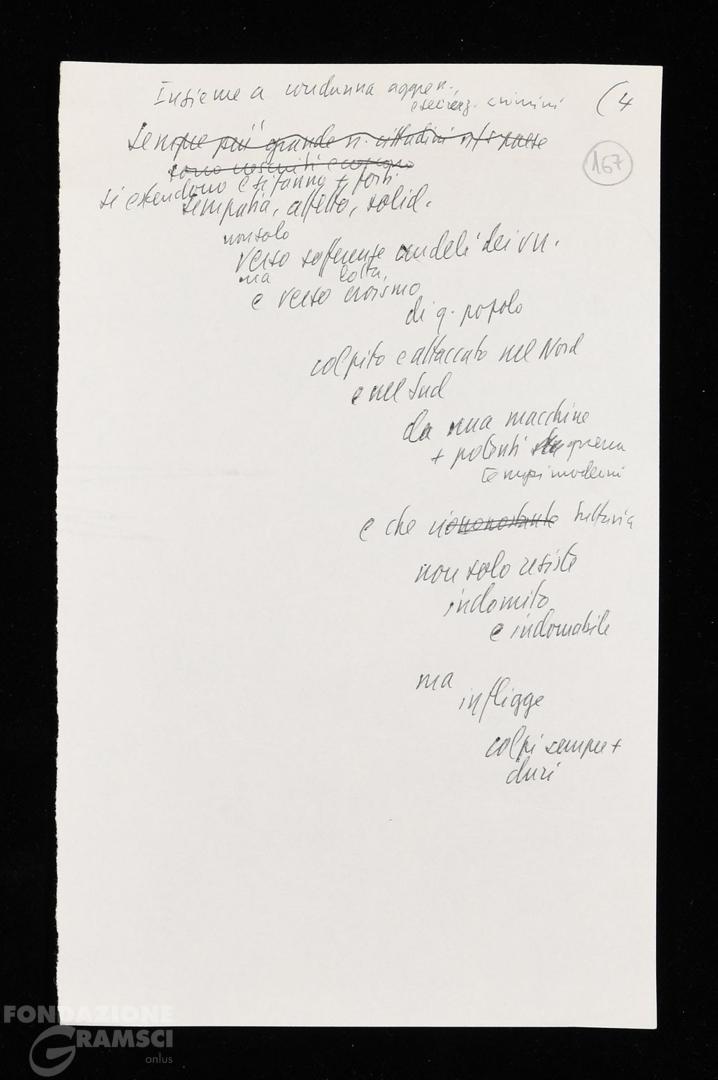 Insieme a condanna aggres.,
esecraz. crimini
(4
167
sempre più grande n. cittadini n/s paese
sono
si estendono e si fanno + forti
simpatia, affetto, solid.
non solo
verso sofferenze crudeli dei vn.
ma lotta,
e verso eroismo
di q. popolo
colpito e attaccato nel Nord
e nel Sud
da una macchine
+ potenti guerra
tempi moderni
e che nonostante tuttavia
non solo resiste
indomito
e indomabile
ma
infligge
colpi sempre +
duri
FONDAZIONE
GRAMSCI
onlus